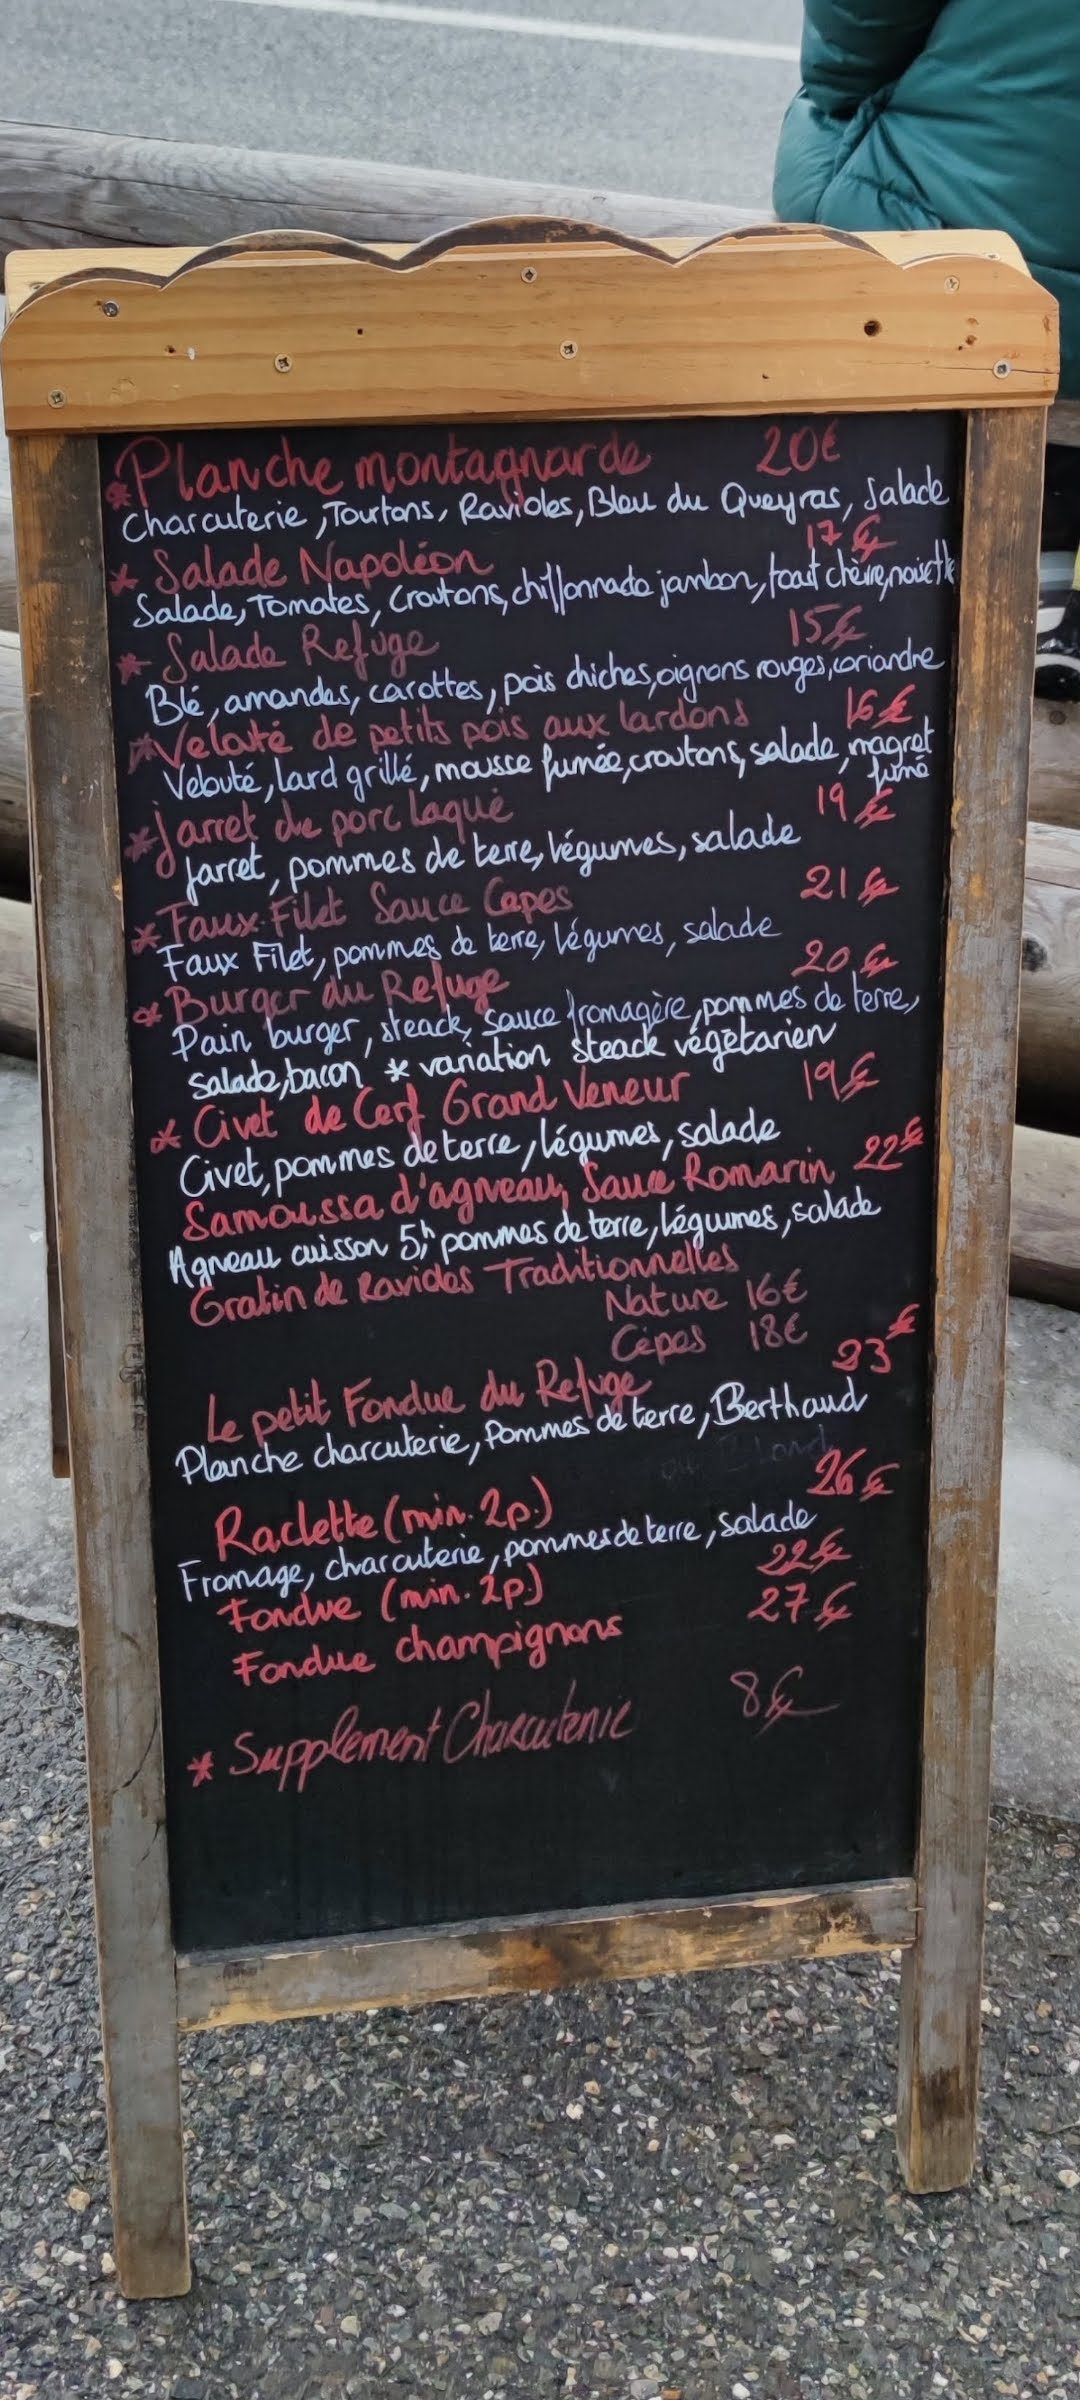 * Planche montagnarde 20€
Charcuterie, Tourtons, Ravioles, Bleu du Queyras, Salade
* Salade Napoléon 17€
Salade, Tomates, croutons, chiffonnade jambon, toast chèvre, noisette
* Salade Refuge 15€
Blé, amandes, carottes, pois chiches, oignons rouges, coriandre
* Velouté de petits pois aux lardons 16€
Velouté, lard grillé, mousse fumée, croutons, salade, magret
fumé
* Jarret de porc laqué 19€
Jarret, pommes de terre, légumes, salade
* Faux-Filet Sauce Cepes 21€
Faux Filet, pommes de terre, légumes, salade
* Burger du Refuge 20€
Pain burger, steack, sauce fromagère, pommes de terre,
salade, bacon * variation steack végétarien
* Civet de Cerf Grand Veneur 19€
Civet, pommes de terre, légumes, salade
Samoussa d'agneau, Sauce Romarin 22€
Agneau cuisson 5h, pommes de terre, légumes, salade
Gratin de Ravioles Traditionnelles
Nature 16€
Cèpes 18€
Le petit Fondue du Refuge 23€
Planche charcuterie, Pommes de terre, Berthaud
Raclette (min. 2p.) 26€
Fromage, charcuterie, pommes de terre, salade
Fondue (min. 2p) 22€
Fondue champignons 27€
* Supplement Charcuterie 8€